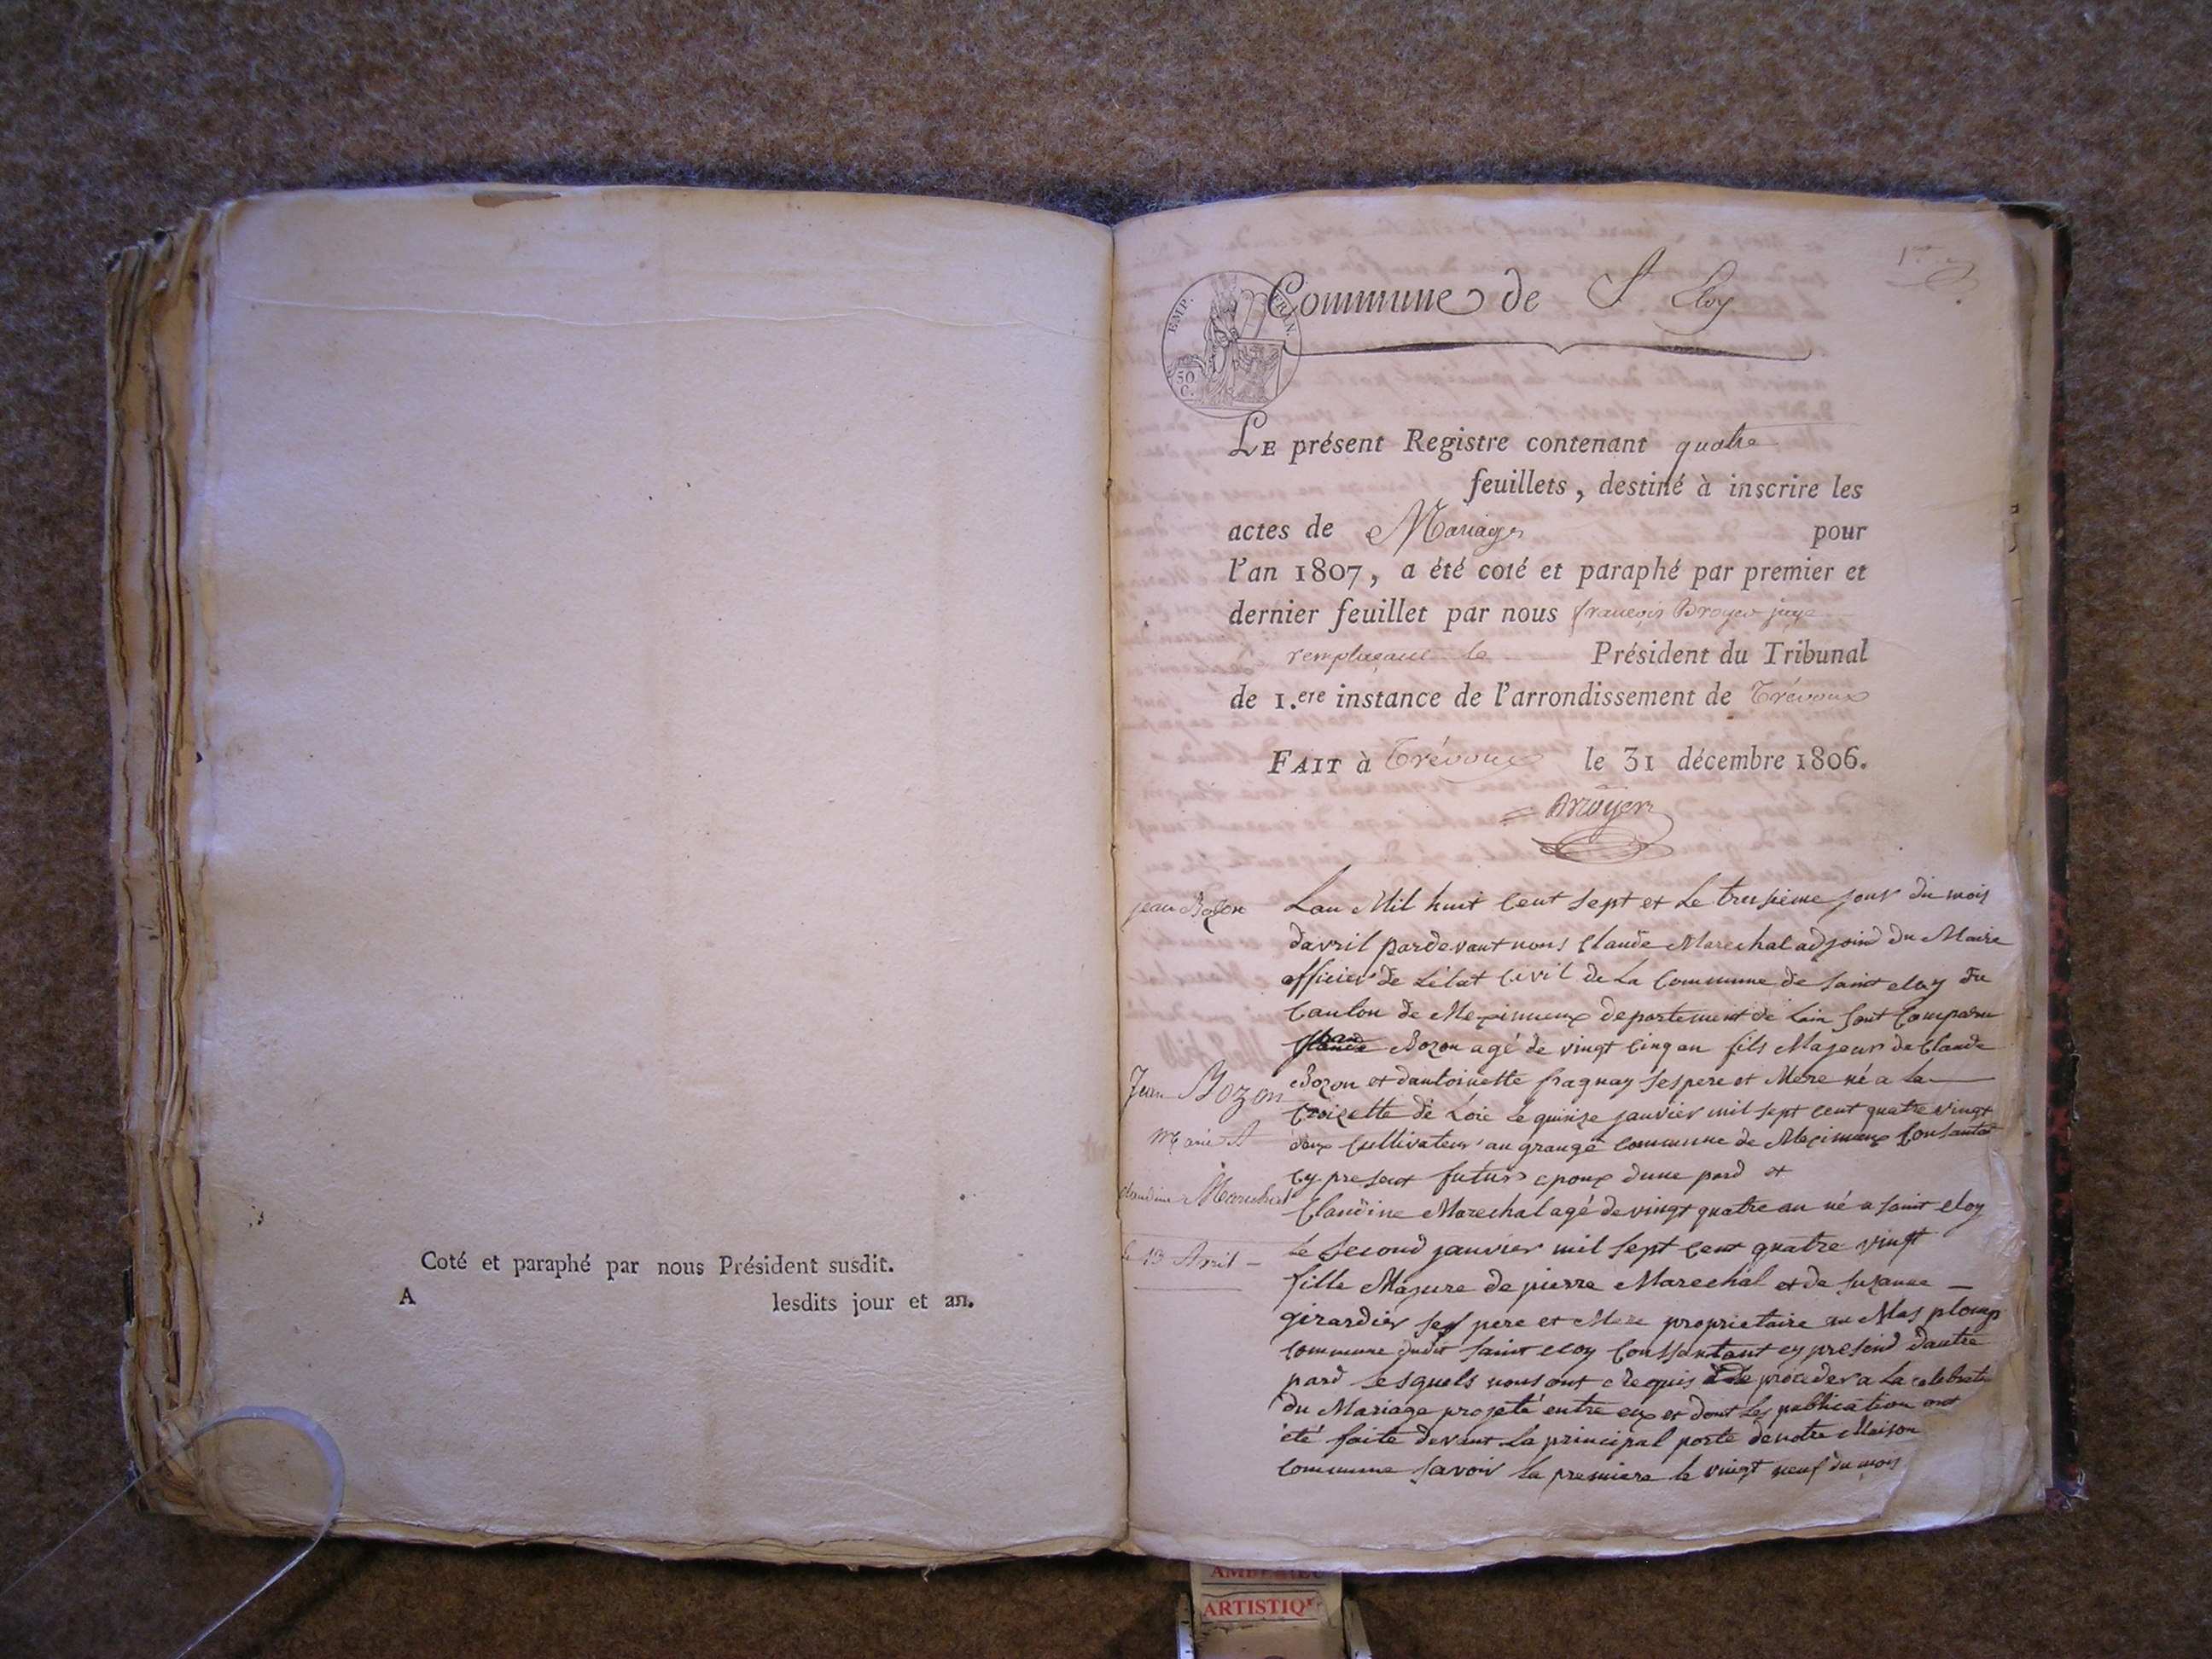 Coté et paraphé par nous Président susdit.
A lesdits jour et an.
1er
EMP. FRAN.
50 C.
Commune de St Eloy
LE présent Registre contenant quatre
feuillets, destiné à inscrire les
actes de Mariages pour
l'an 1807, a été coté et paraphé par premier et
dernier feuillet par nous françois Broyer juge
remplaçant le Président du Tribunal
de 1.ere instance de l'arrondissement de Trévoux
FAIT à Trévoux le 31 décembre 1806.
Broyer
jean Bozon
Jean Bozon
Marie A
claudine Marechal
le 13 Avril
Lan Mil huit Cent Sept et Le treisieme jour du mois
davril pardevant nous Claude Marechal adjoind du Maire
officier de Létat Civil de La Commune de saint eloy du
Canton de Meximieux departement de Lain sont Comparu
jean Bozon agé de vingt Cinq an fils Majeur de Claude
Bozon et dantoinette fragnay ses pere et Mere né a la
Croizette de Loie le quinze janvier mil sept cent quatre vingt
deux Cultivateur au grange commune de Meximieux Consantant
Cy present futur epoux dune pard et
Claudine Marechal agé de vingt quatre an né a saint eloy
le Second janvier mil Sept Cent quatre vingt
fille Majure de pierre Marechal et de suzanne
girardier ses pere et Mere proprietaire au Mas plomp
commune dudit saint eloy Conssantant cy presend dautre
pard Lesquels nous ont Requis de proceder a La celebration
du Mariage projeté entre eux et dont Les publication ont
été faite devant La principal porte de notre Maison
Commune Savoir La premiere le vingt neuf du mois
AMBERIEU
ARTISTIQ